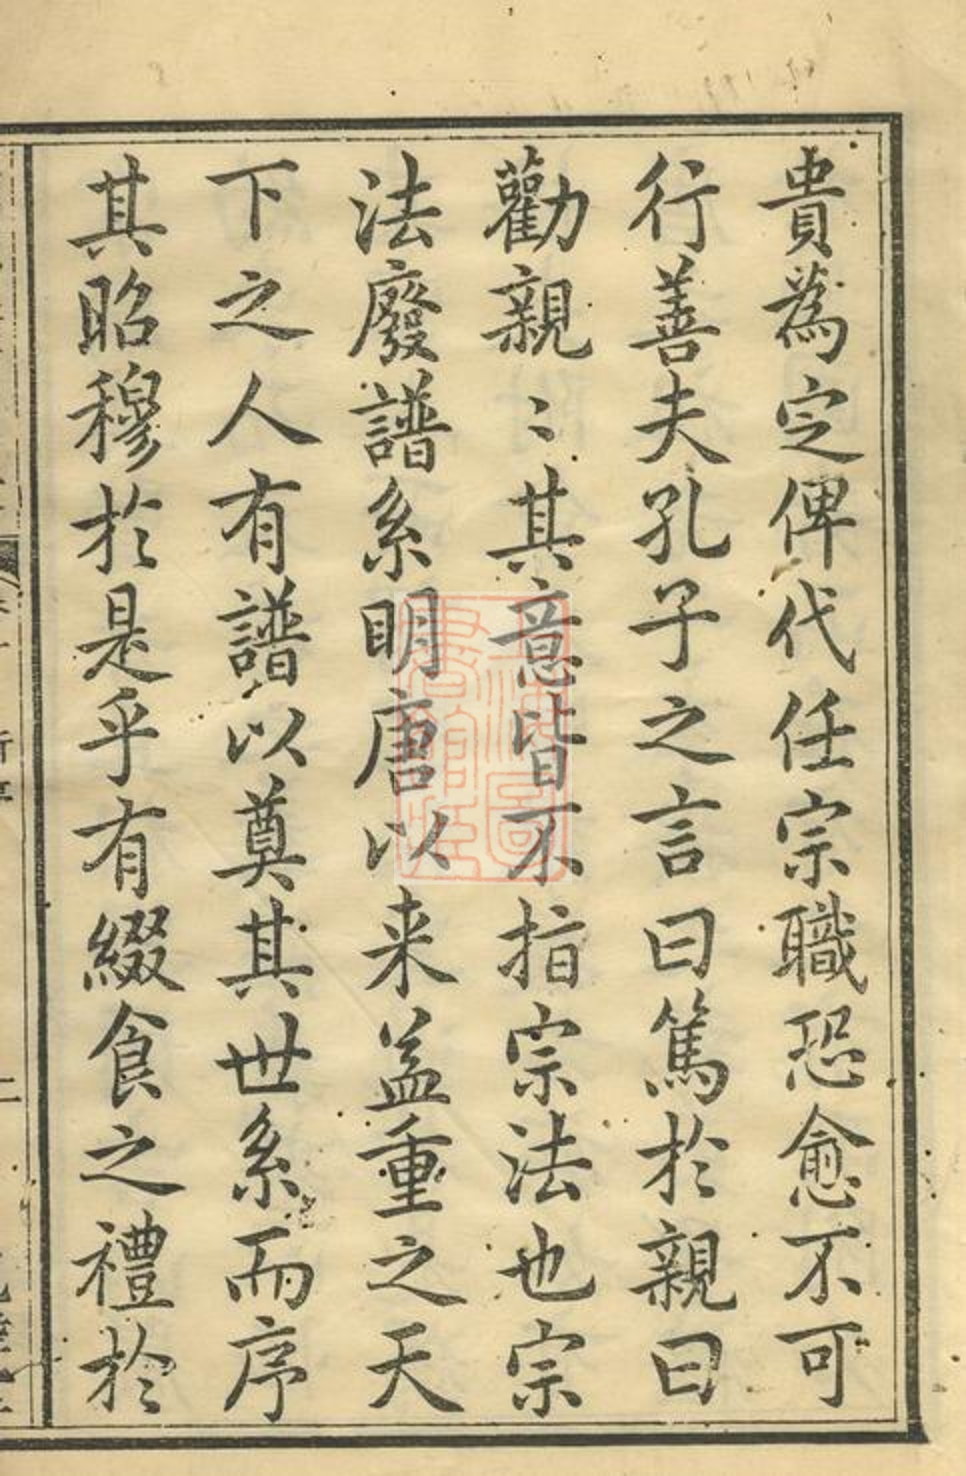 貴為定俾代任宗職恐愈不可
行善夫孔子之言曰篤於親曰
勸親〻其意皆不指宗法也宗
法廢譜系明唐以来益重之天
下之人有譜以奠其世系而序
其昭穆於是乎有綴食之禮於